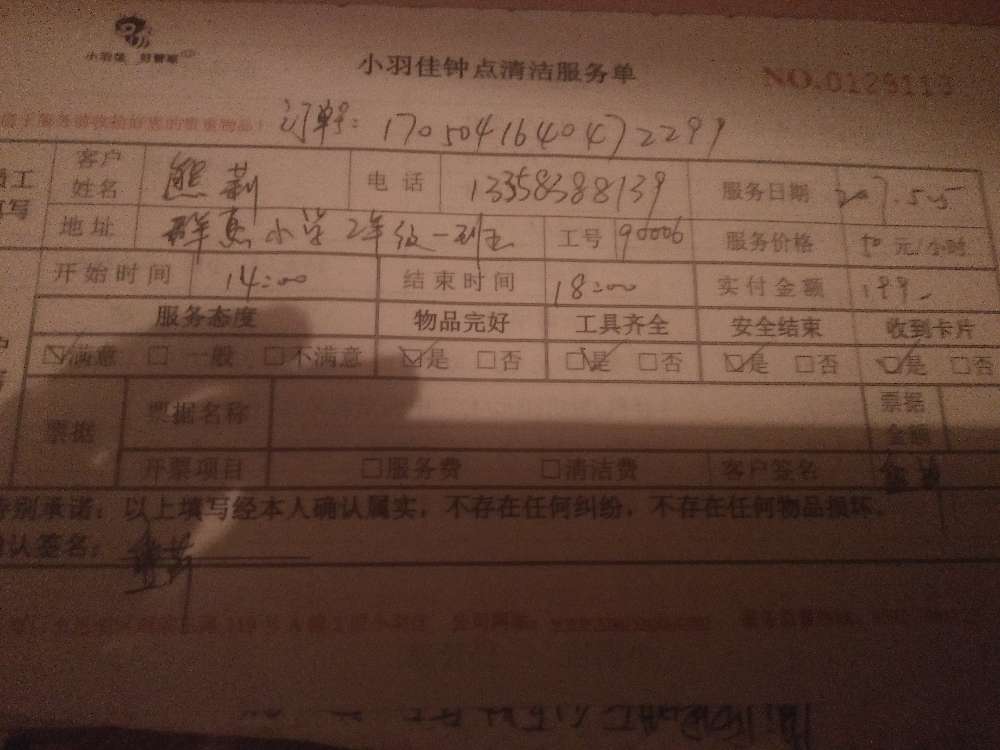 小羽佳 好管家
小羽佳钟点清洁服务单
NO.0129113
订单号: 1705041640472299
客户姓名 熊莉 电话 13358388139 服务日期 2017.5.5
地址 小学2年级一班 工号 90006 服务价格 50元/小时
开始时间 14:00 结束时间 18:00 实付金额 199
服务态度 物品完好 工具齐全 安全结束 收到卡片
☑满意 □一般 □不满意 ☑是 □否 ☑是 □否 ☑是 □否 ☑是 □否
票据 票据名称 票据金额
开票项目 □服务费 □清洁费 客户签名 熊莉
特别承诺：以上填写经本人确认属实，不存在任何纠纷，不存在任何物品损坏．
确认签名： 熊莉